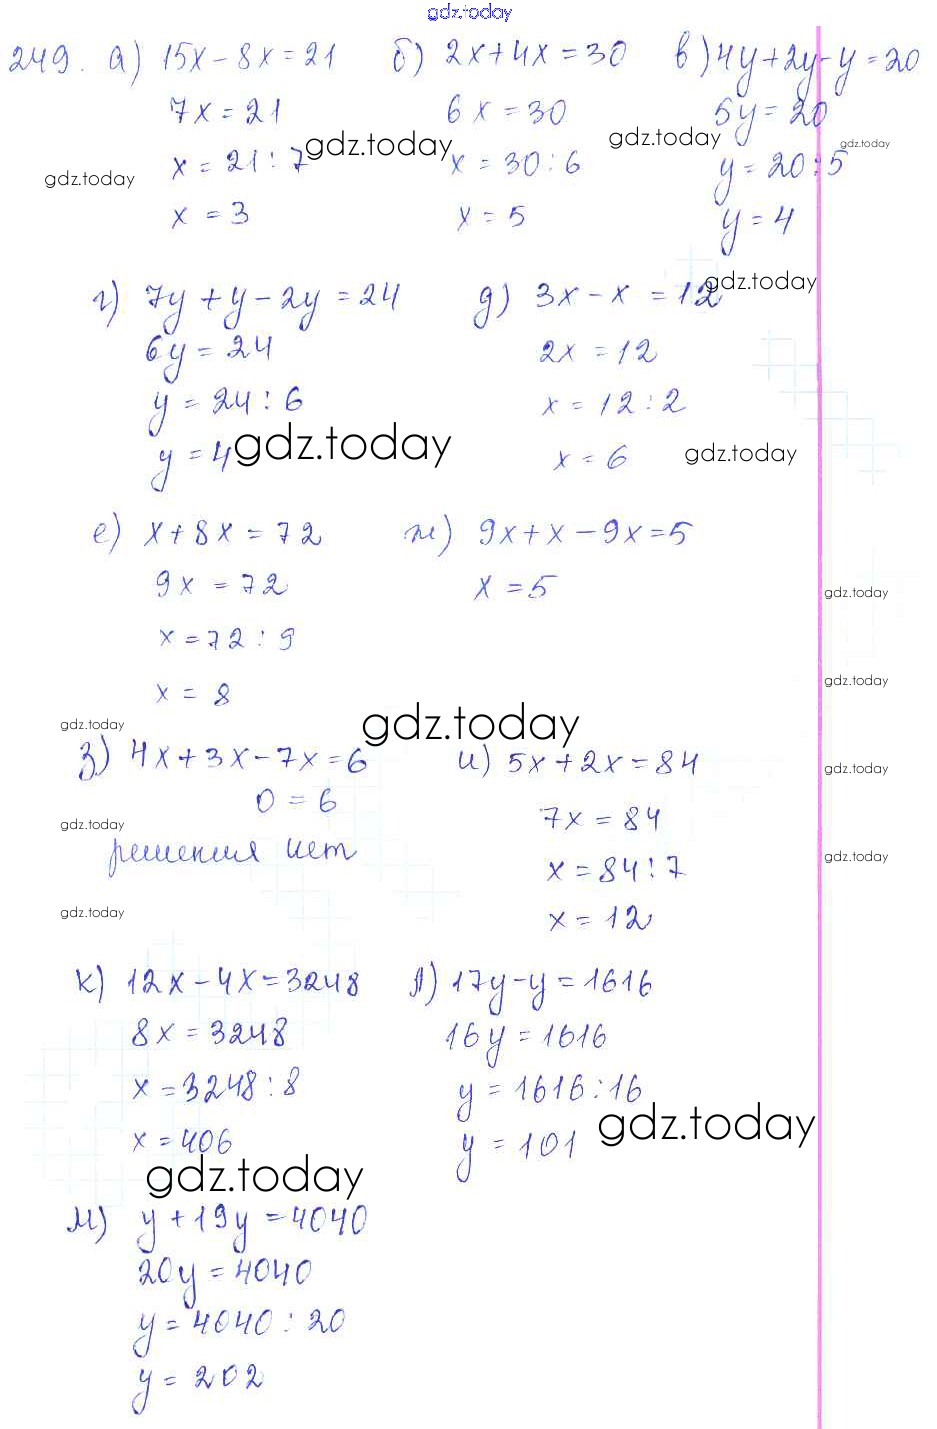 gdz.today
249. а) 15x - 8x = 21 б) 2x + 4x = 30 в) 4y + 2y - y = 20
7x = 21 6x = 30 5y = 20
gdz.today gdz.today gdz.today
x = 21 : 7 x = 30 : 6 y = 20 : 5
gdz.today
x = 3 x = 5 y = 4
gdz.today
г) 7y + y - 2y = 24 д) 3x - x = 12
6y = 24 2x = 12
y = 24 : 6 x = 12 : 2
y = 4 gdz.today x = 6 gdz.today
е) x + 8x = 72 ж) 9x + x - 9x = 5
9x = 72 x = 5
gdz.today
x = 72 : 9
x = 8
gdz.today
gdz.today gdz.today
з) 4x + 3x - 7x = 6 и) 5x + 2x = 84
gdz.today
0 = 6 7x = 84
gdz.today
решения нет x = 84 : 7
gdz.today
gdz.today x = 12
к) 12x - 4x = 3248 л) 17y - y = 1616
8x = 3248 16y = 1616
x = 3248 : 8 y = 1616 : 16
gdz.today
x = 406 y = 101
gdz.today
м) y + 19y = 4040
20y = 4040
y = 4040 : 20
y = 202